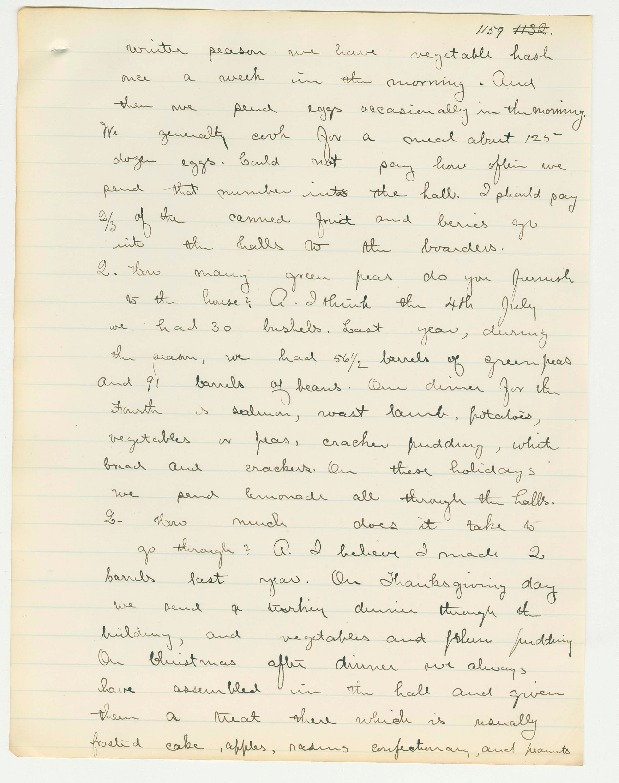 1159 1132.
winter season we have vegetable hash
once a week in the morning. And
then we send eggs occasionally in the morning.
We generally cook for a meal about 125
dozen eggs. Could not say how often we
send that number into the hall. I should say
2/3 of the canned fruit and berries go
into the halls to the boarders.
Q. How many green peas do you furnish
to the house? A. I think the 4th July
we had 30 bushels. Last year, during
the season, we had 56 1/2 barrels of green peas
and 91 barrels of beans. Our dinner for the
Fourth is salmon, roast lamb, potatoes,
vegetables or peas, cracker pudding, white
bread and crackers. On these holidays
we send lemonade all through the halls.
Q- How much does it take to
go through? A. I believe I made 2
barrels last year. On Thanksgiving day
we send a turkey dinner through the
building, and vegetables and plum pudding
On Christmas after dinner we always
have assembled in the hall and given
them a treat there which is usually
frosted cake, apples, raisins confectionary, and peanuts